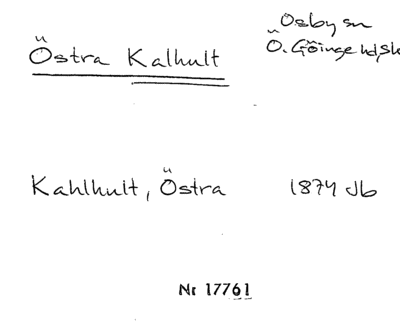 Östra Kalhult
Osby sn
Ö. Göinge hd, Sk
Kahlhult, Östra
1874 Jb
Nr 17761